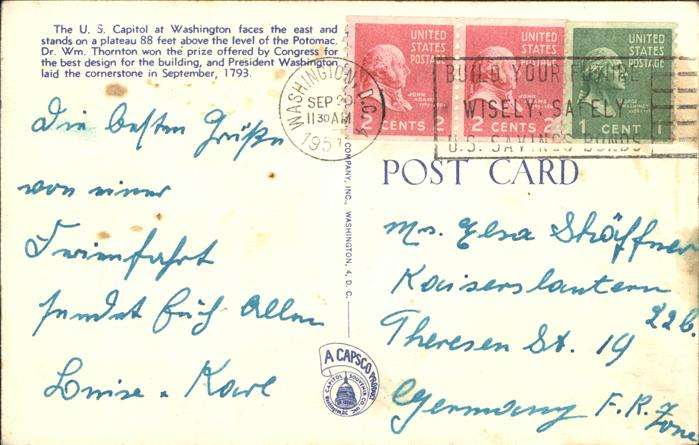 The U. S. Capitol at Washington faces the east and
stands on a plateau 88 feet above the level of the Potomac.
Dr. Wm. Thornton won the prize offered by Congress for
the best design for the building, and President Washington
laid the cornerstone in September, 1793.
UNITED
STATES
POSTAGE
JOHN
ADAMS
2 CENTS 2
UNITED
STATES
POSTAGE
JOHN
ADAMS
2 CENTS 2
UNITED
STATES
POSTAGE
1 CENT 1
WASHINGTON, D.C. 4
SEP
11 30 AM
195
BUILD YOUR FUTURE
WISELY, SAFELY
U.S. SAVINGS BONDS
Die besten Grüße
von einer
Ferienfahrt
sendet Euch Allen
Luise u. Karl
COMPANY, INC., WASHINGTON, 4, D. C.
POST CARD
Mrs. Elsa Stäffner
Kaiserslautern
22b.
Theresen St. 19
Germany F.R. Zone
A CAPSCO PRODUCT
CAPITOL SOUVENIR CO.